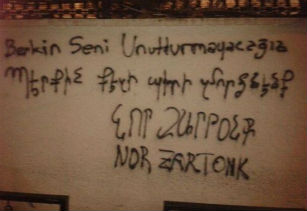 Berkin Seni Unutturmayacağız
Պէրքին պիտի
ՆՈՐ ԶԱՐԹՕՆՔ
NOR ZARTONK